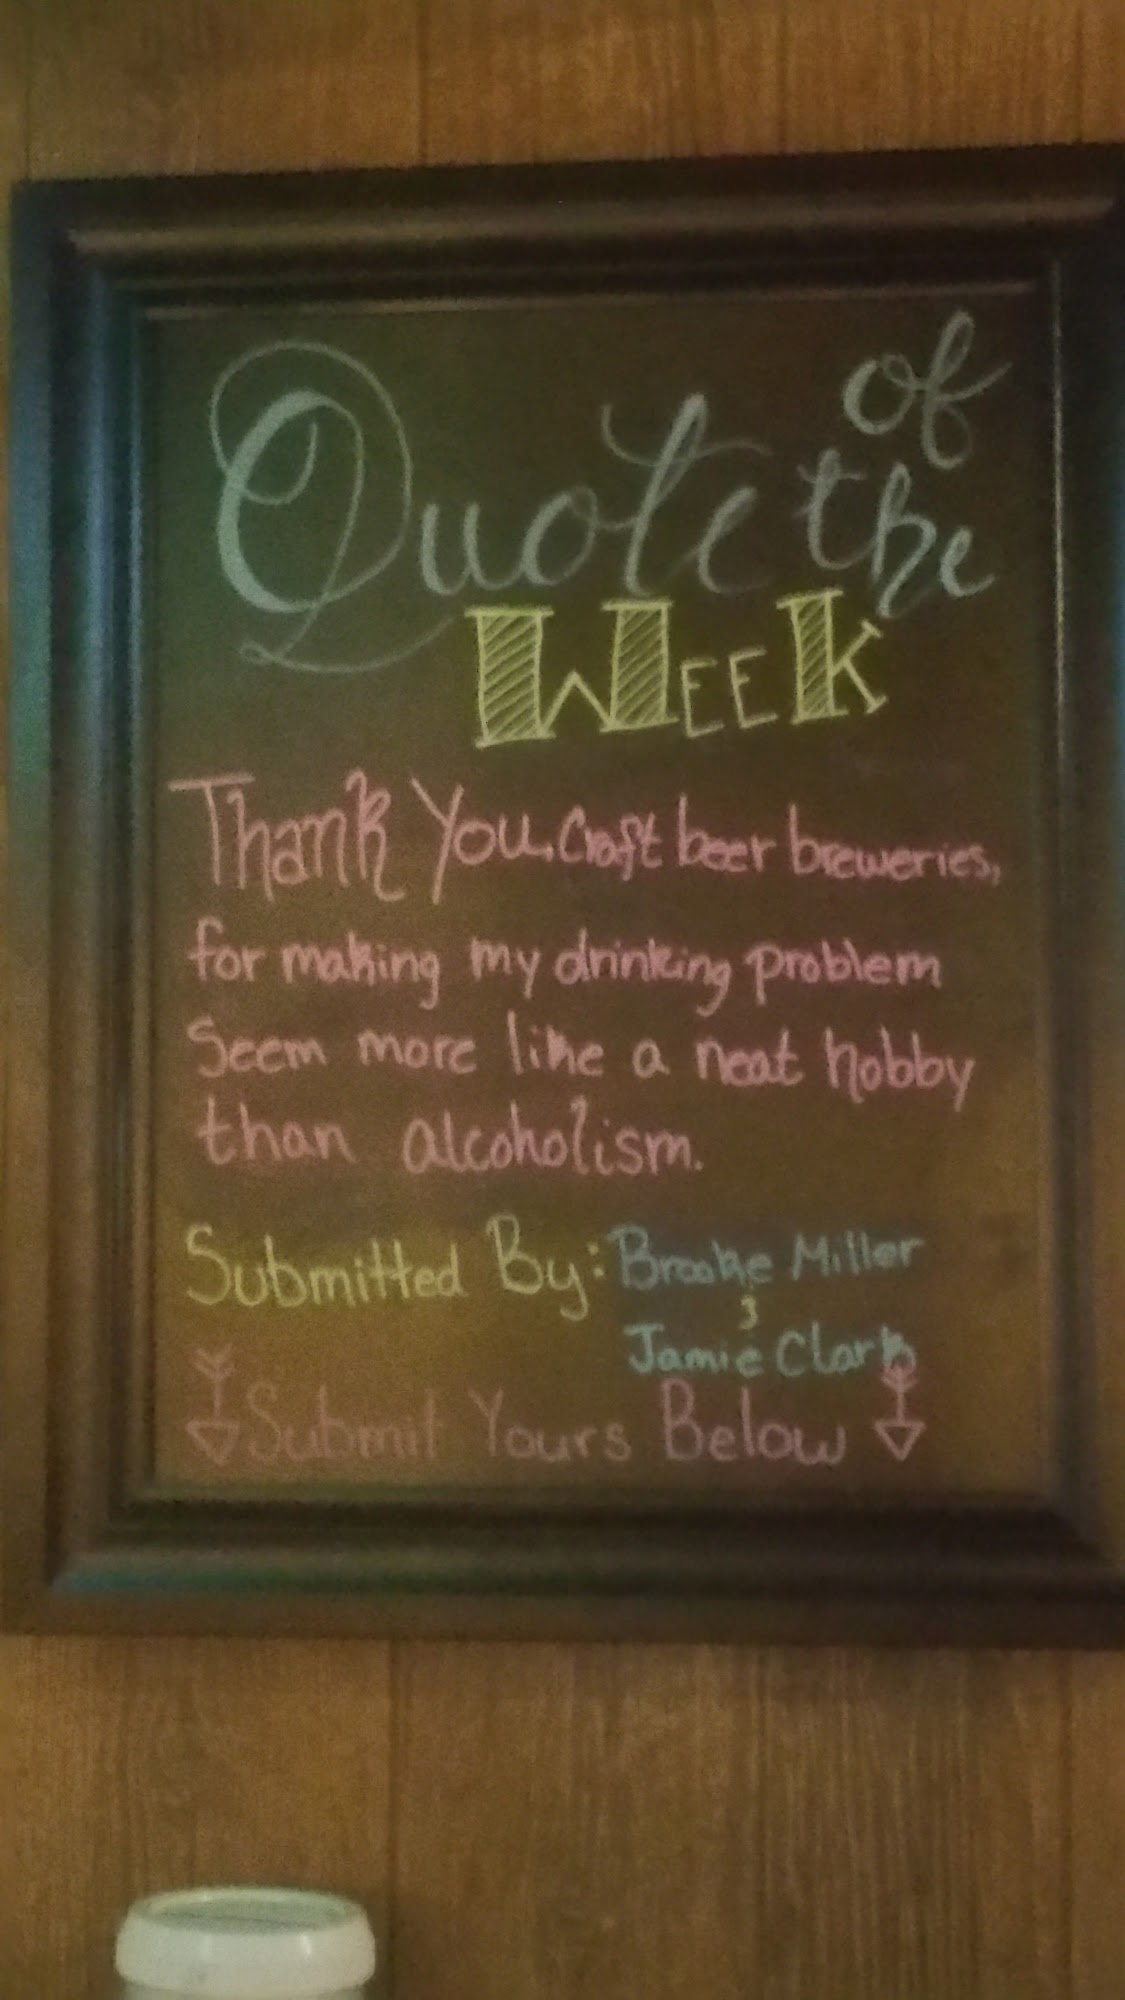 Quote of
the
WEEK
Thank You, Craft beer breweries,
for making my drinking problem
Seem more like a neat hobby
than alcoholism.
Submitted By: Brooke Miller
&
Jamie Clark
Submit Yours Below